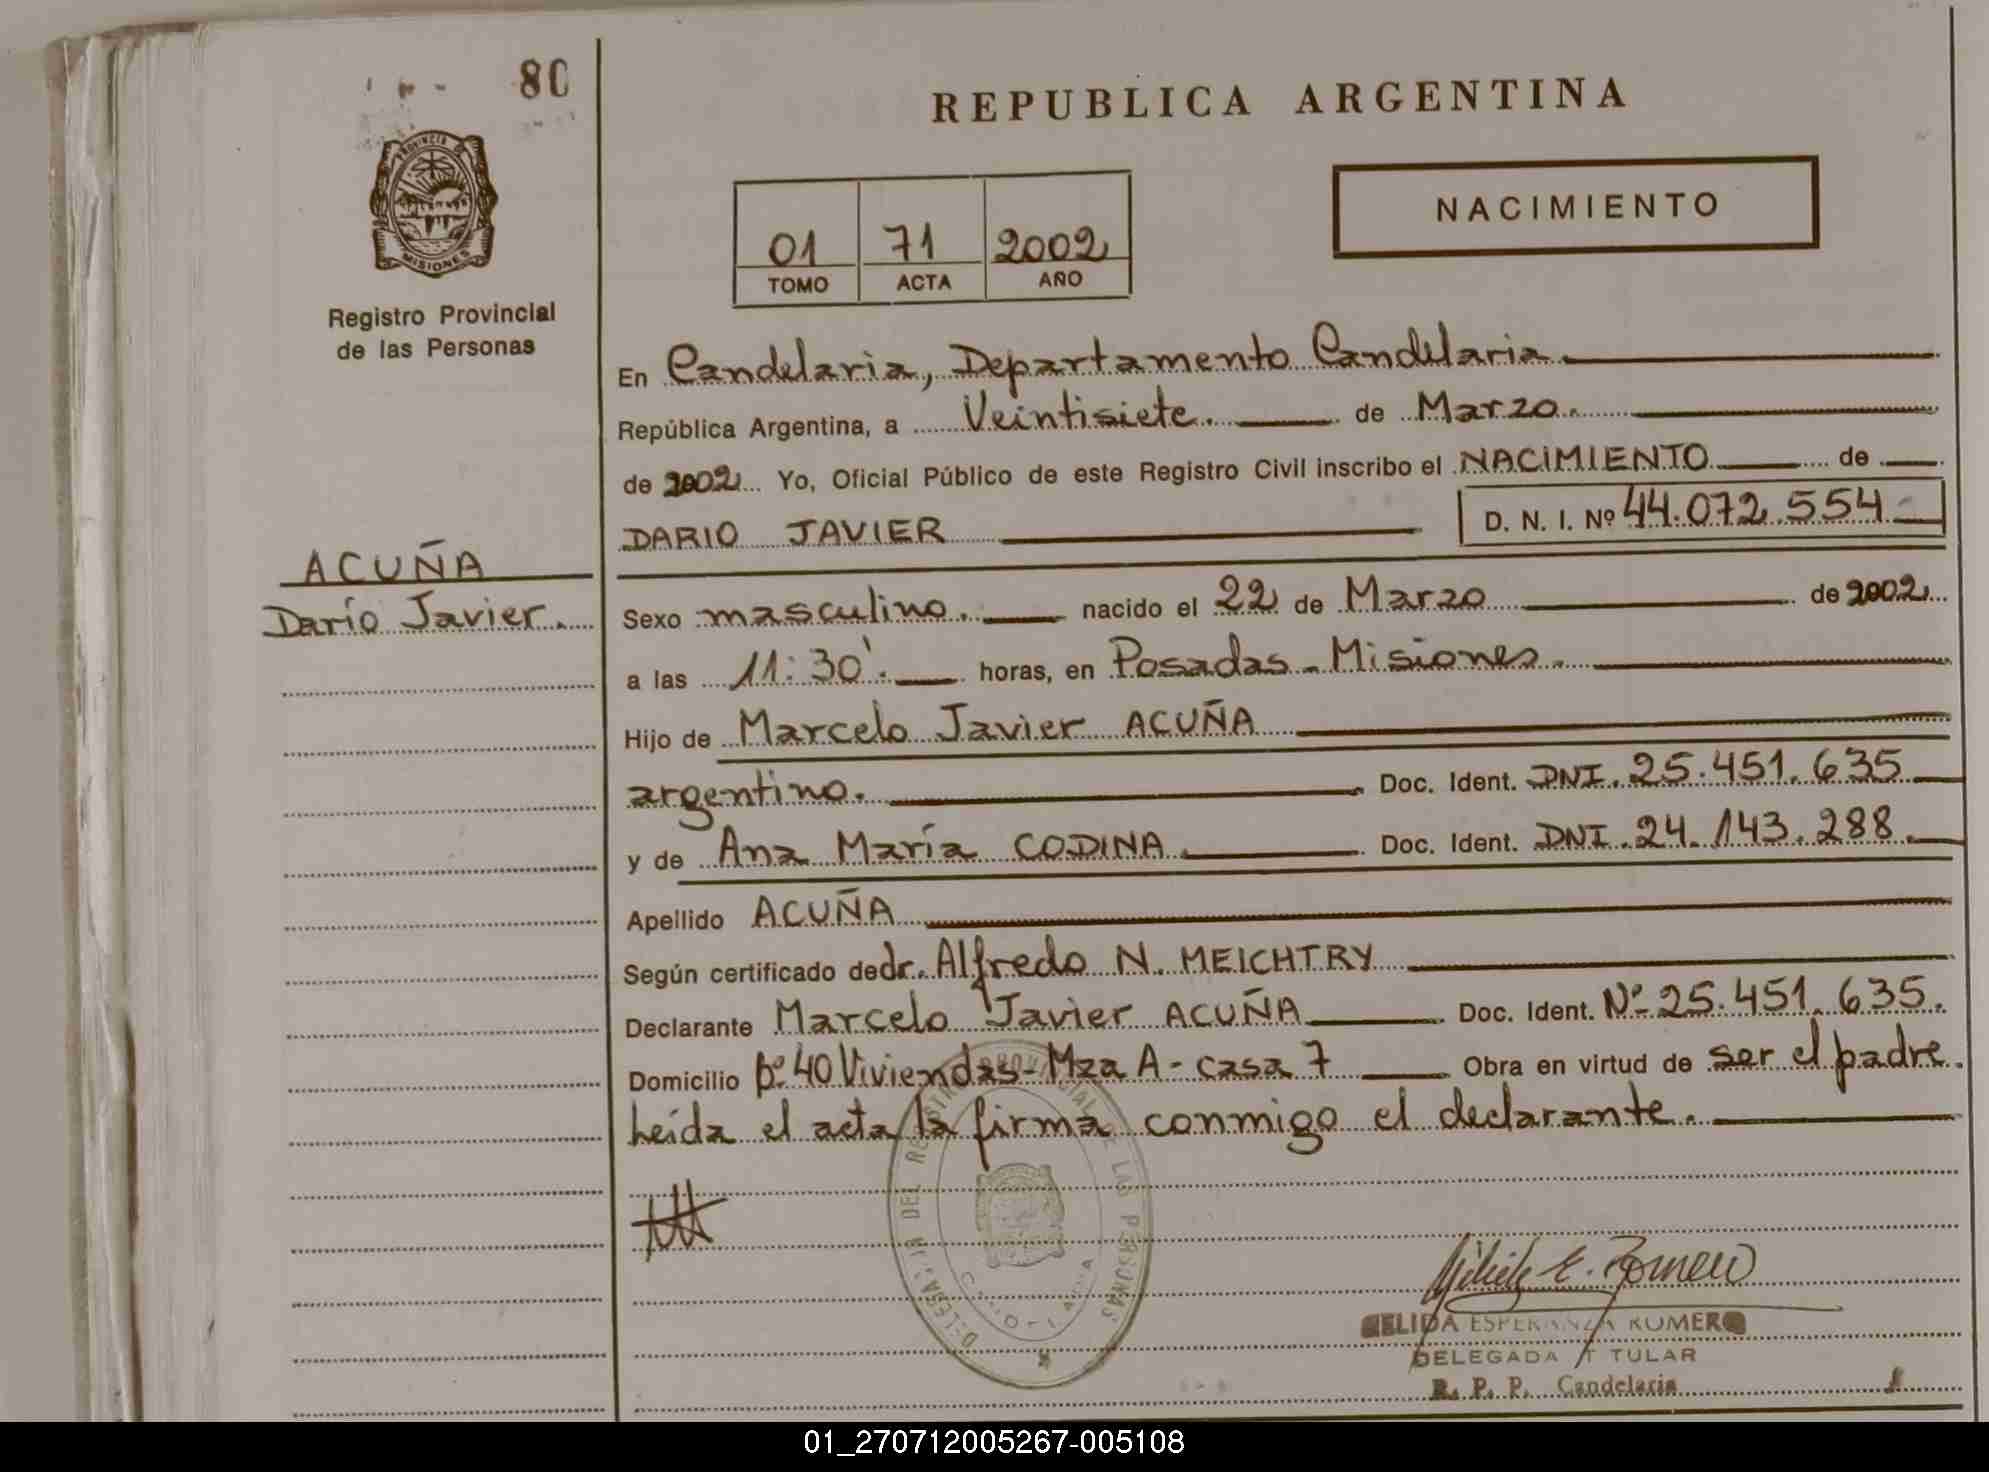 80
REPUBLICA ARGENTINA
PROVINCIA DE
MISIONES
Registro Provincial
de las Personas
01 71 2002
TOMO ACTA AÑO
NACIMIENTO
En Candelaria, Departamento Candelaria
República Argentina, a Veintisiete. de Marzo.
de 2002 Yo, Oficial Público de este Registro Civil inscribo el NACIMIENTO de
DARIO JAVIER D. N. I. Nº 44.072.554
ACUÑA
Darío Javier.
Sexo masculino. nacido el 22 de Marzo de 2002
a las 11:30'. horas, en Posadas - Misiones.
Hijo de Marcelo Javier ACUÑA
argentino. Doc. Ident. DNI. 25.451.635
y de Ana María CODINA Doc. Ident. DNI. 24.143.288.
Apellido ACUÑA
Según certificado de dr. Alfredo N. MEICHTRY
Declarante Marcelo Javier ACUÑA Doc. Ident. Nº 25.451.635.
Domicilio bº 40 Viviendas - Mza A - casa 7 Obra en virtud de ser el padre.
Leída el acta la firma conmigo el declarante.
DEL REGISTRO PROVINCIAL DE LAS PERSONAS
E. Romero
ELIDA ESPERANZA ROMERO
DELEGADA TITULAR
R. P. P. Candelaria
01_270712005267-005108